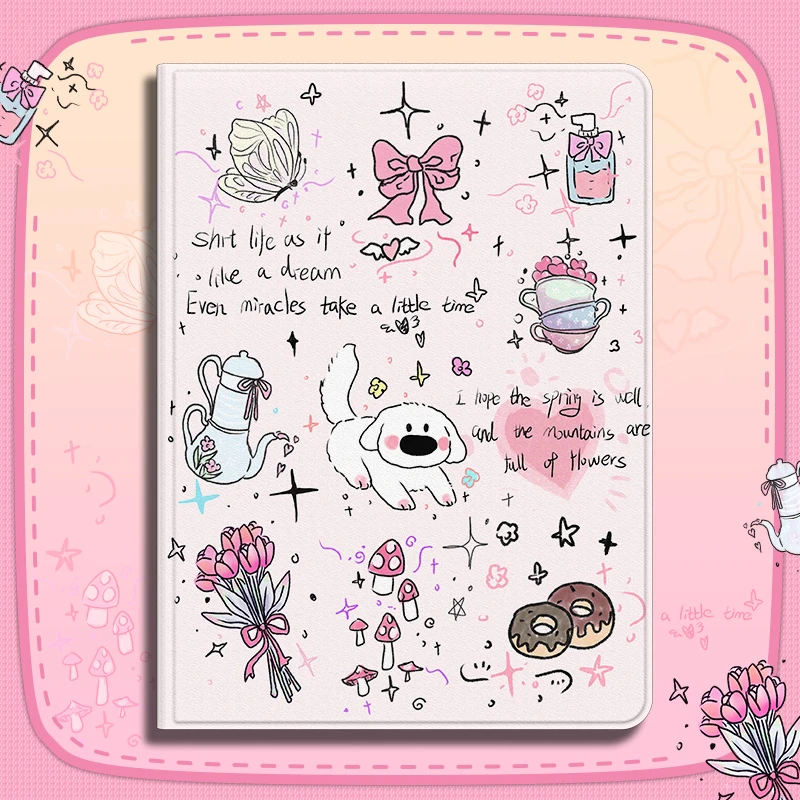 Shit life as if
like a dream
Even miracles take a little time
I hope the spring is well,
and the mountains are
full of flowers
a little time